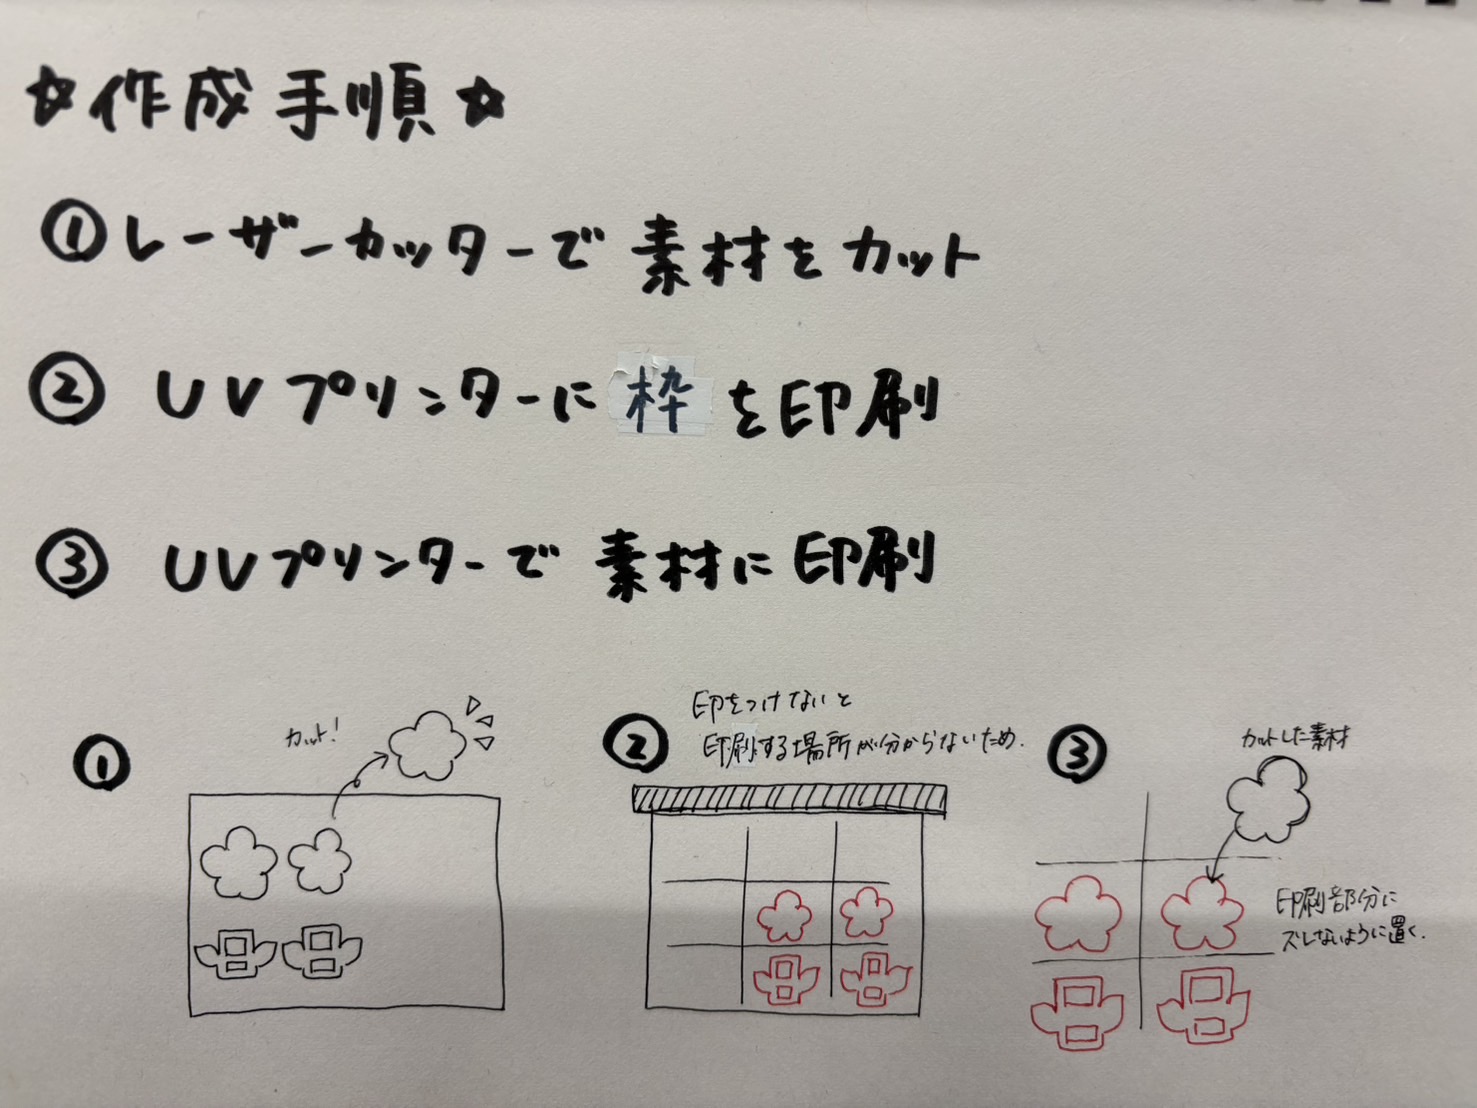 ☆作成手順☆
①レーザーカッターで素材をカット
②UVプリンターに枠を印刷
③UVプリンターで素材に印刷
①
カット!
②
印をつけないと
印刷する場所が分からないため.
③
カットした素材
印刷部分に
ズレないように置く.